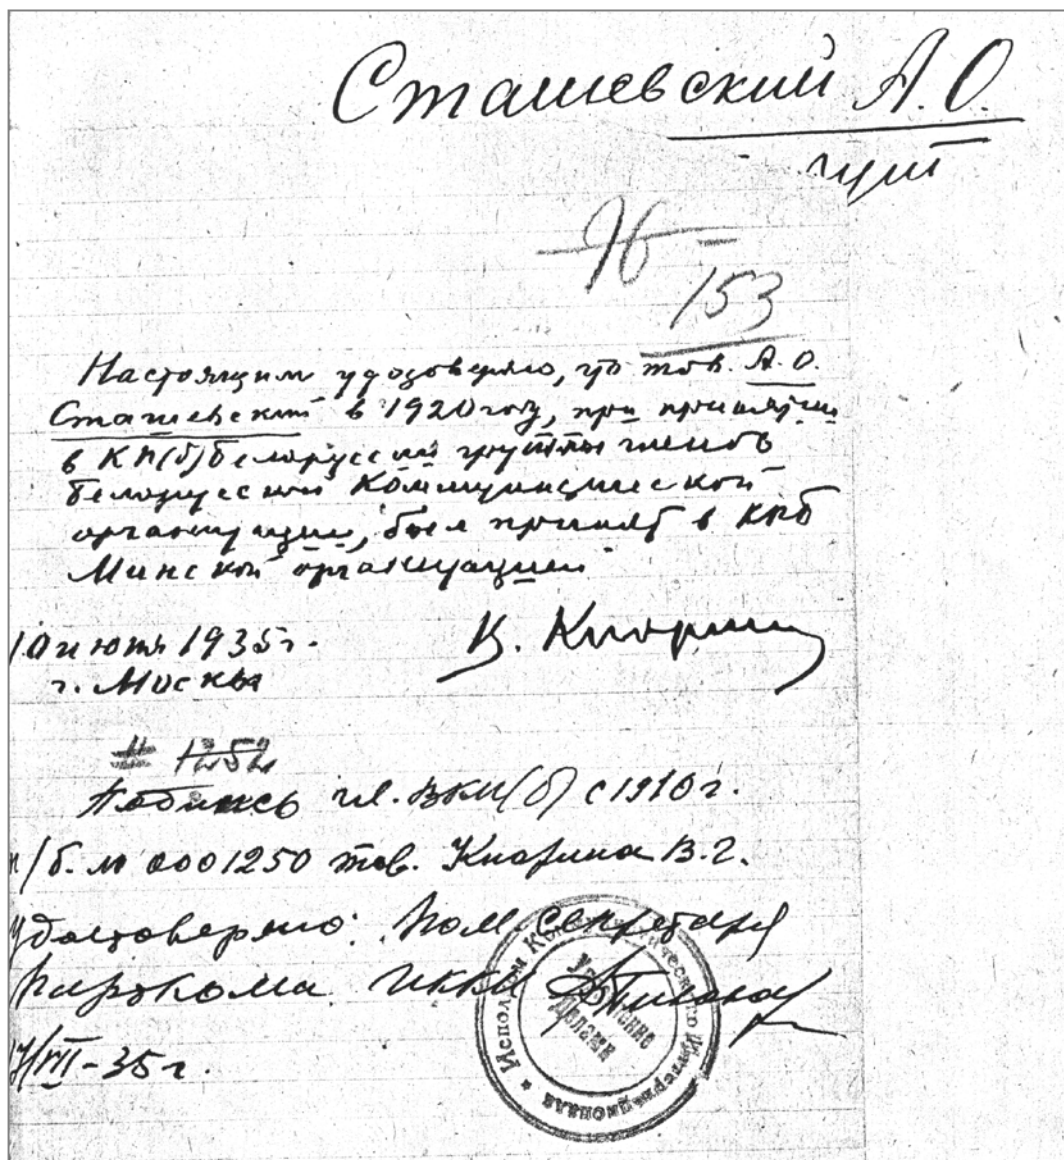 Сташевский А.О.
153
Настоящим удостоверяю, что тов. А.О.
Сташевский в 1920 году, при принятии
в КП(б) белорусской группы членов
белорусской Коммунистической
организации, был принят в КПб
Минской организацией
10 июня 1935 г.
В. Кнорин
г. Москва
# 1252
Подпись чл. ВКП(б) с 1910 г.
п/б. № 0001250 тов. Кнорина В.Г.
удостоверяю: Пом. Секретаря
Парткома ИККИ
7/VII-35 г.
Исполком Коммунистического Интернационала
Управление
Делами